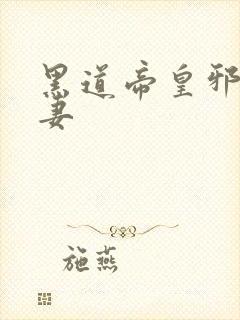 黑道帝皇邪
妻
施燕